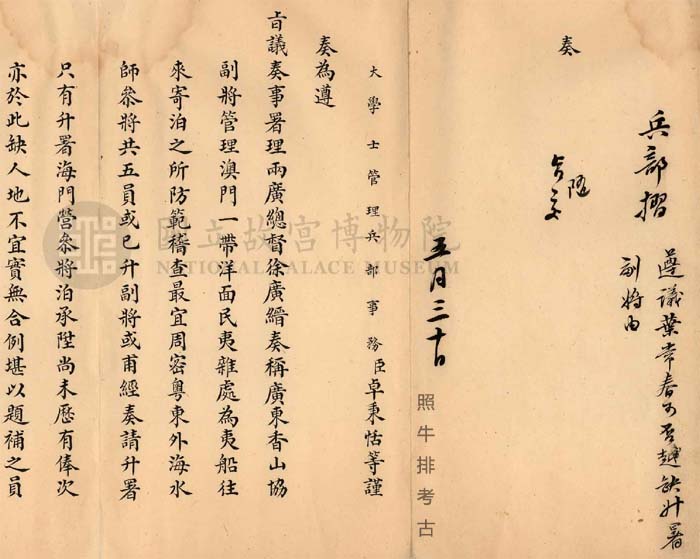 兵部摺
遵議葉常春可否越缺升署
副將由
隨
奏
五月三十日
大學士管理兵部事務臣卓秉恬等謹
奏為遵
旨議奏事署理兩廣總督徐廣縉奏稱廣東香山協
副將管理澳門一帶洋面民夷雜處為夷船往
來寄泊之所防範稽查最宜周密粵東外海水
師叅將共五員或已升副將或甫經奏請升署
只有升署海門營叅將泊承陞尚未歷有俸次
亦於此缺人地不宜實無合例堪以題補之員
國立故宮博物院
NATIONAL PALACE MUSEUM
照牛排考古